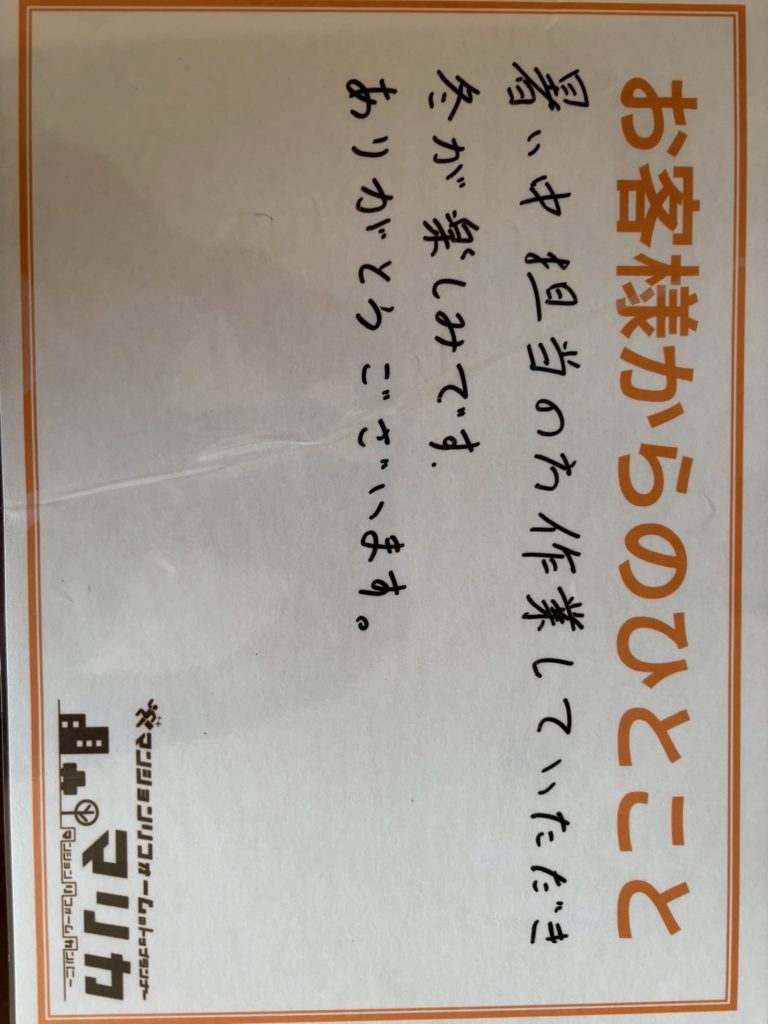 お客様からのひとこと
暑い中担当の方作業していただき
冬が楽しみです.
ありがとうございます。
マンションリフォームのトップランナー
マリカ
マンションリフォームカンパニー